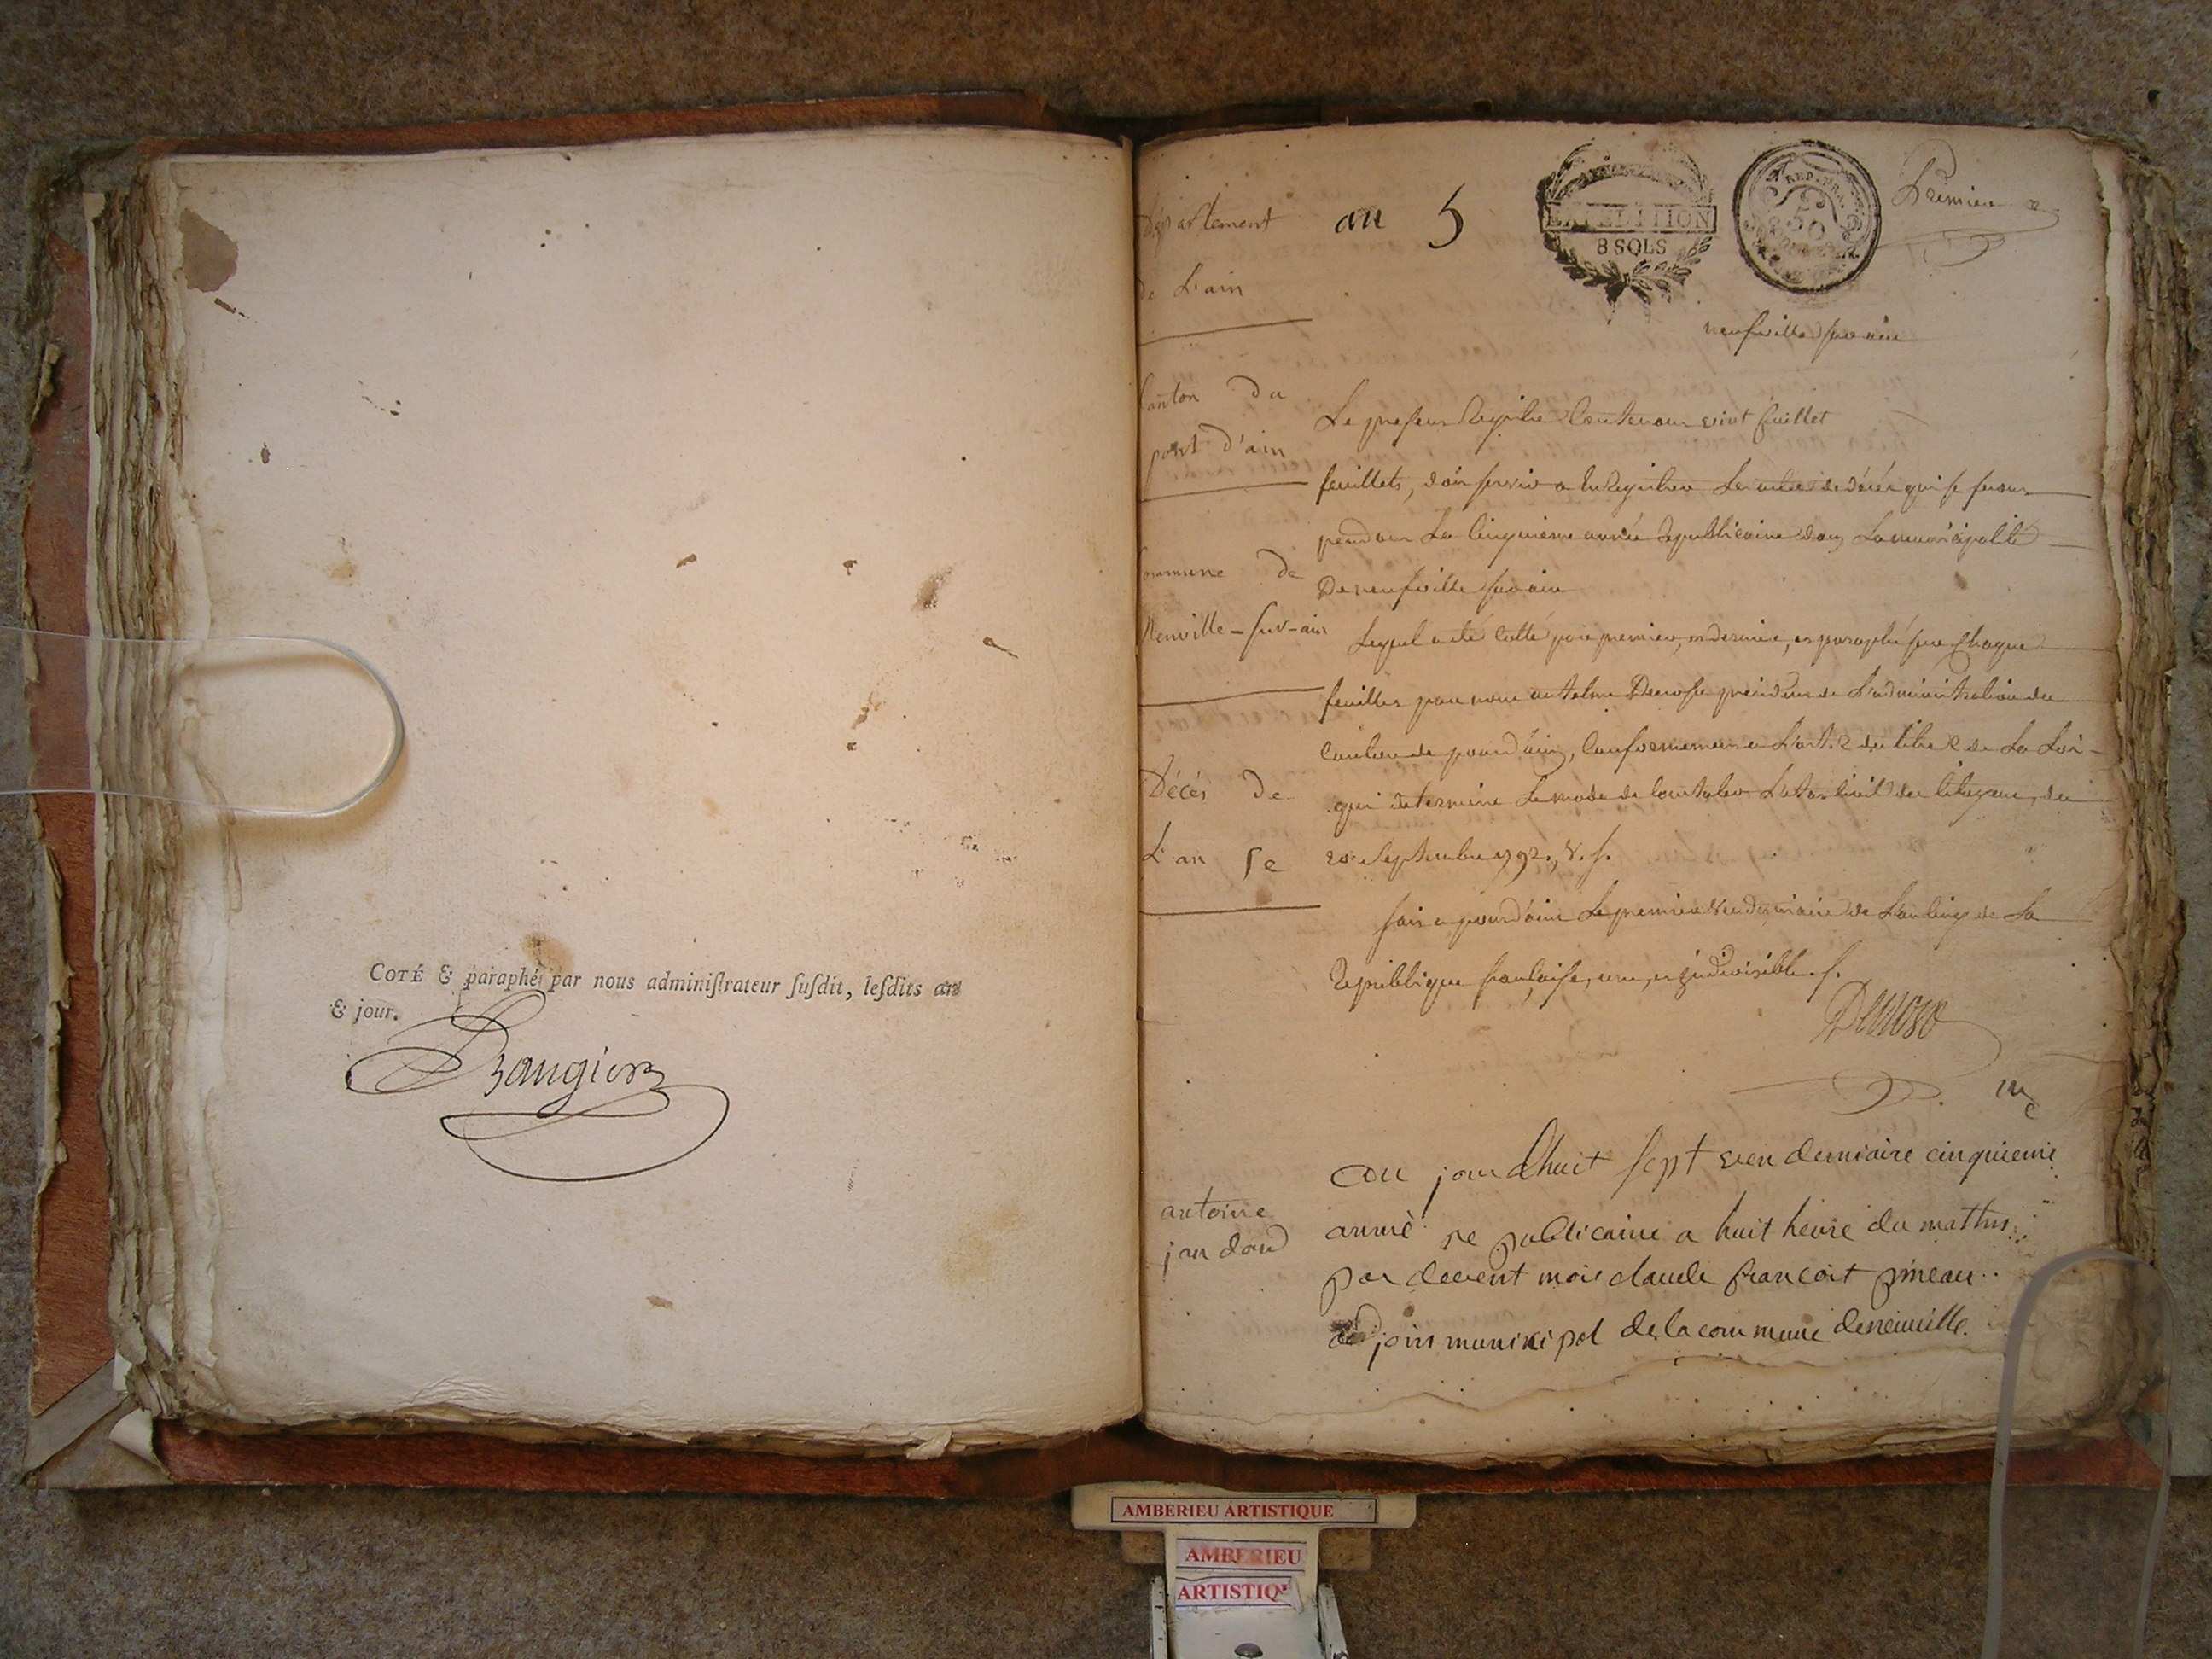 COTÉ & paraphé par nous adminiſtrateur ſuſdit, leſdits an
& jour.
Département
de L'ain
an 5
EXPEDITION
8 SOLS
REP. FRA.
50
Premier
neufville sur ain
Canton du
pont d'ain
Commune de
Neuville-sur-ain
Décés de
L'an 5e
Le present Registre Contenant vint feuillet
feuillets, doit servir a Enregistrer Les actes de décès qui se feront
pendant La Cinquieme année Republicaine dans La municipalité
De neufville sur ain
Lequel a été Cotté par premier, et dernier, et paraphé sur Chaque
feuillet par nous antelme Denose président de L'administration du
Canton de pont d'ain, Conformement a L'art. 2 du titre 2 de La Loi
qui determine Le mode de Constater L'etat Civil des Citoyens, du
20 Septembre 1792, v. s.
fait a pont d'ain Le premier vendemiaire de L'an Cinq de La
Republique française, une, et indivisible.
Denose
antoine
jandard
au jourdhuit sept vendemiaire cinquieme
année republicaine a huit heure du mattin
par devent mois claude francoit pineau
adjoin municipal de la commune deneuville.
AMBERIEU ARTISTIQUE
AMBERIEU
ARTISTIQ